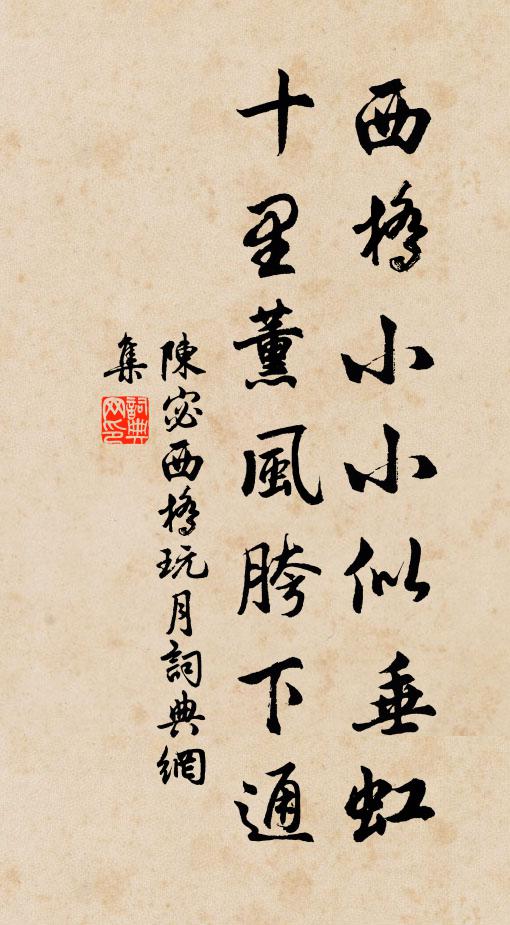 西橋小小似垂虹
十里薰風胯下通
陳宓西橋玩月詞典網
集
詞典
网印